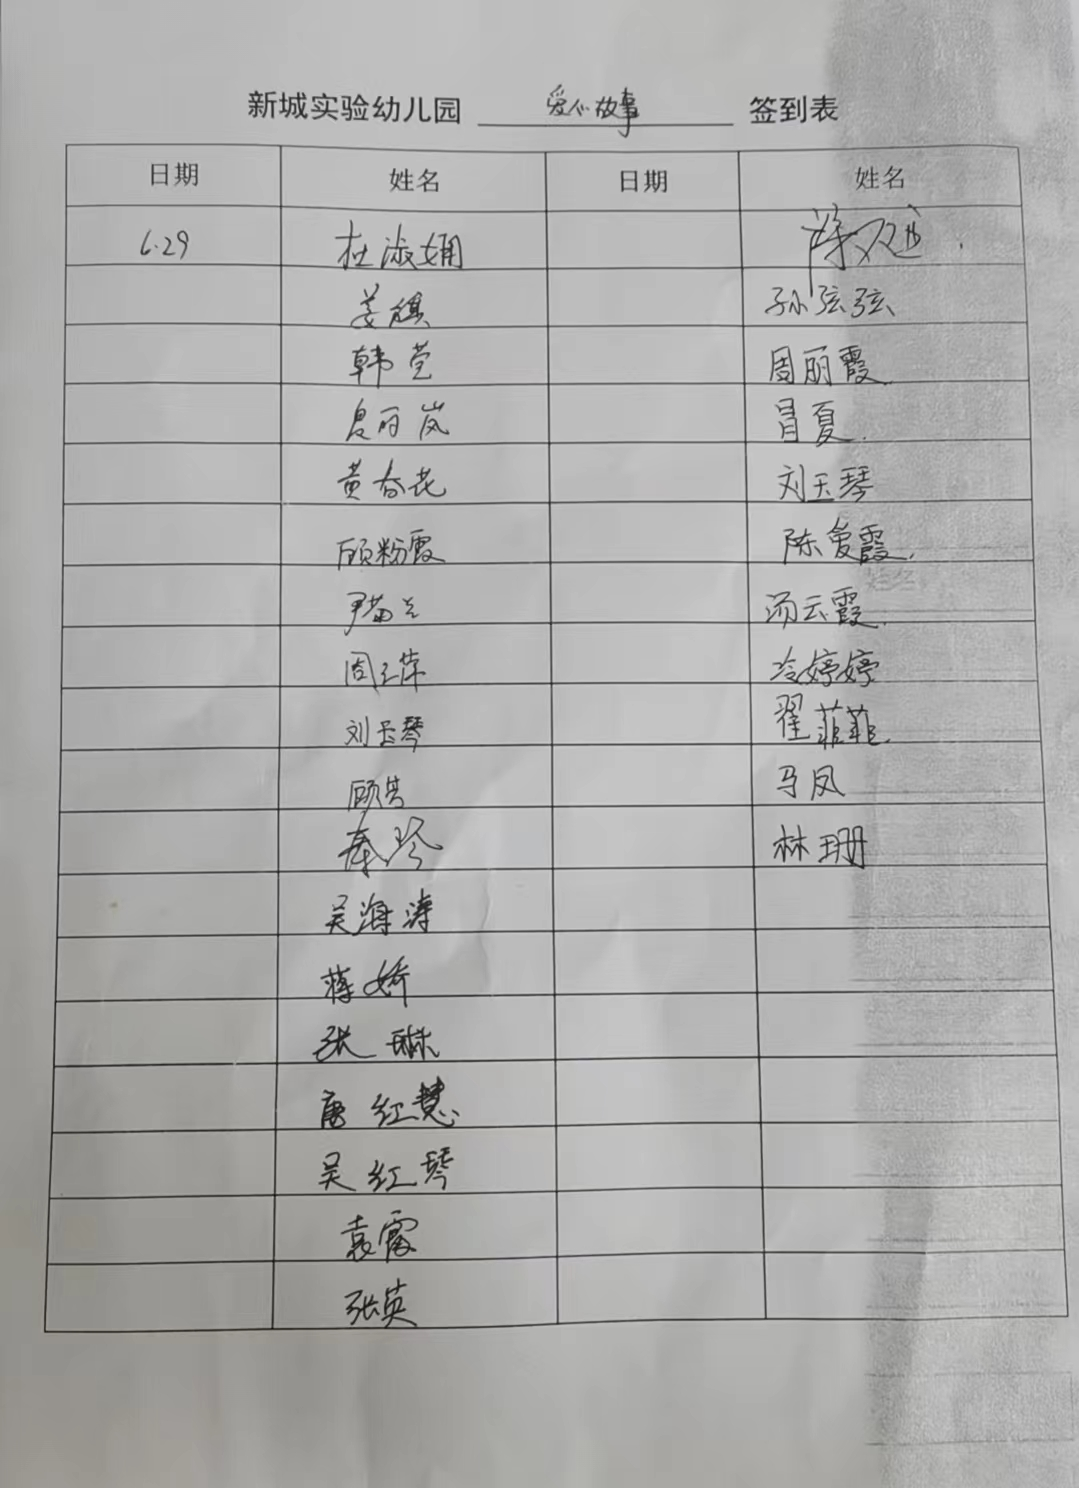 新城实验幼儿园 爱心故事 签到表
日期 姓名 日期 姓名
6.29 杜淑娴
姜祺 孙弦弦
韩莹 周丽霞
夏丽岚 冒夏
黄春花 刘玉琴
顾粉霞 陈爱霞
尹菊兰 汤云霞
周玉萍 冷婷婷
刘玉琴 翟菲菲
顾芸 马凤
秦玲 林珊
吴海涛
蒋娇
张琳
唐红慧
吴红琴
袁霞
张英